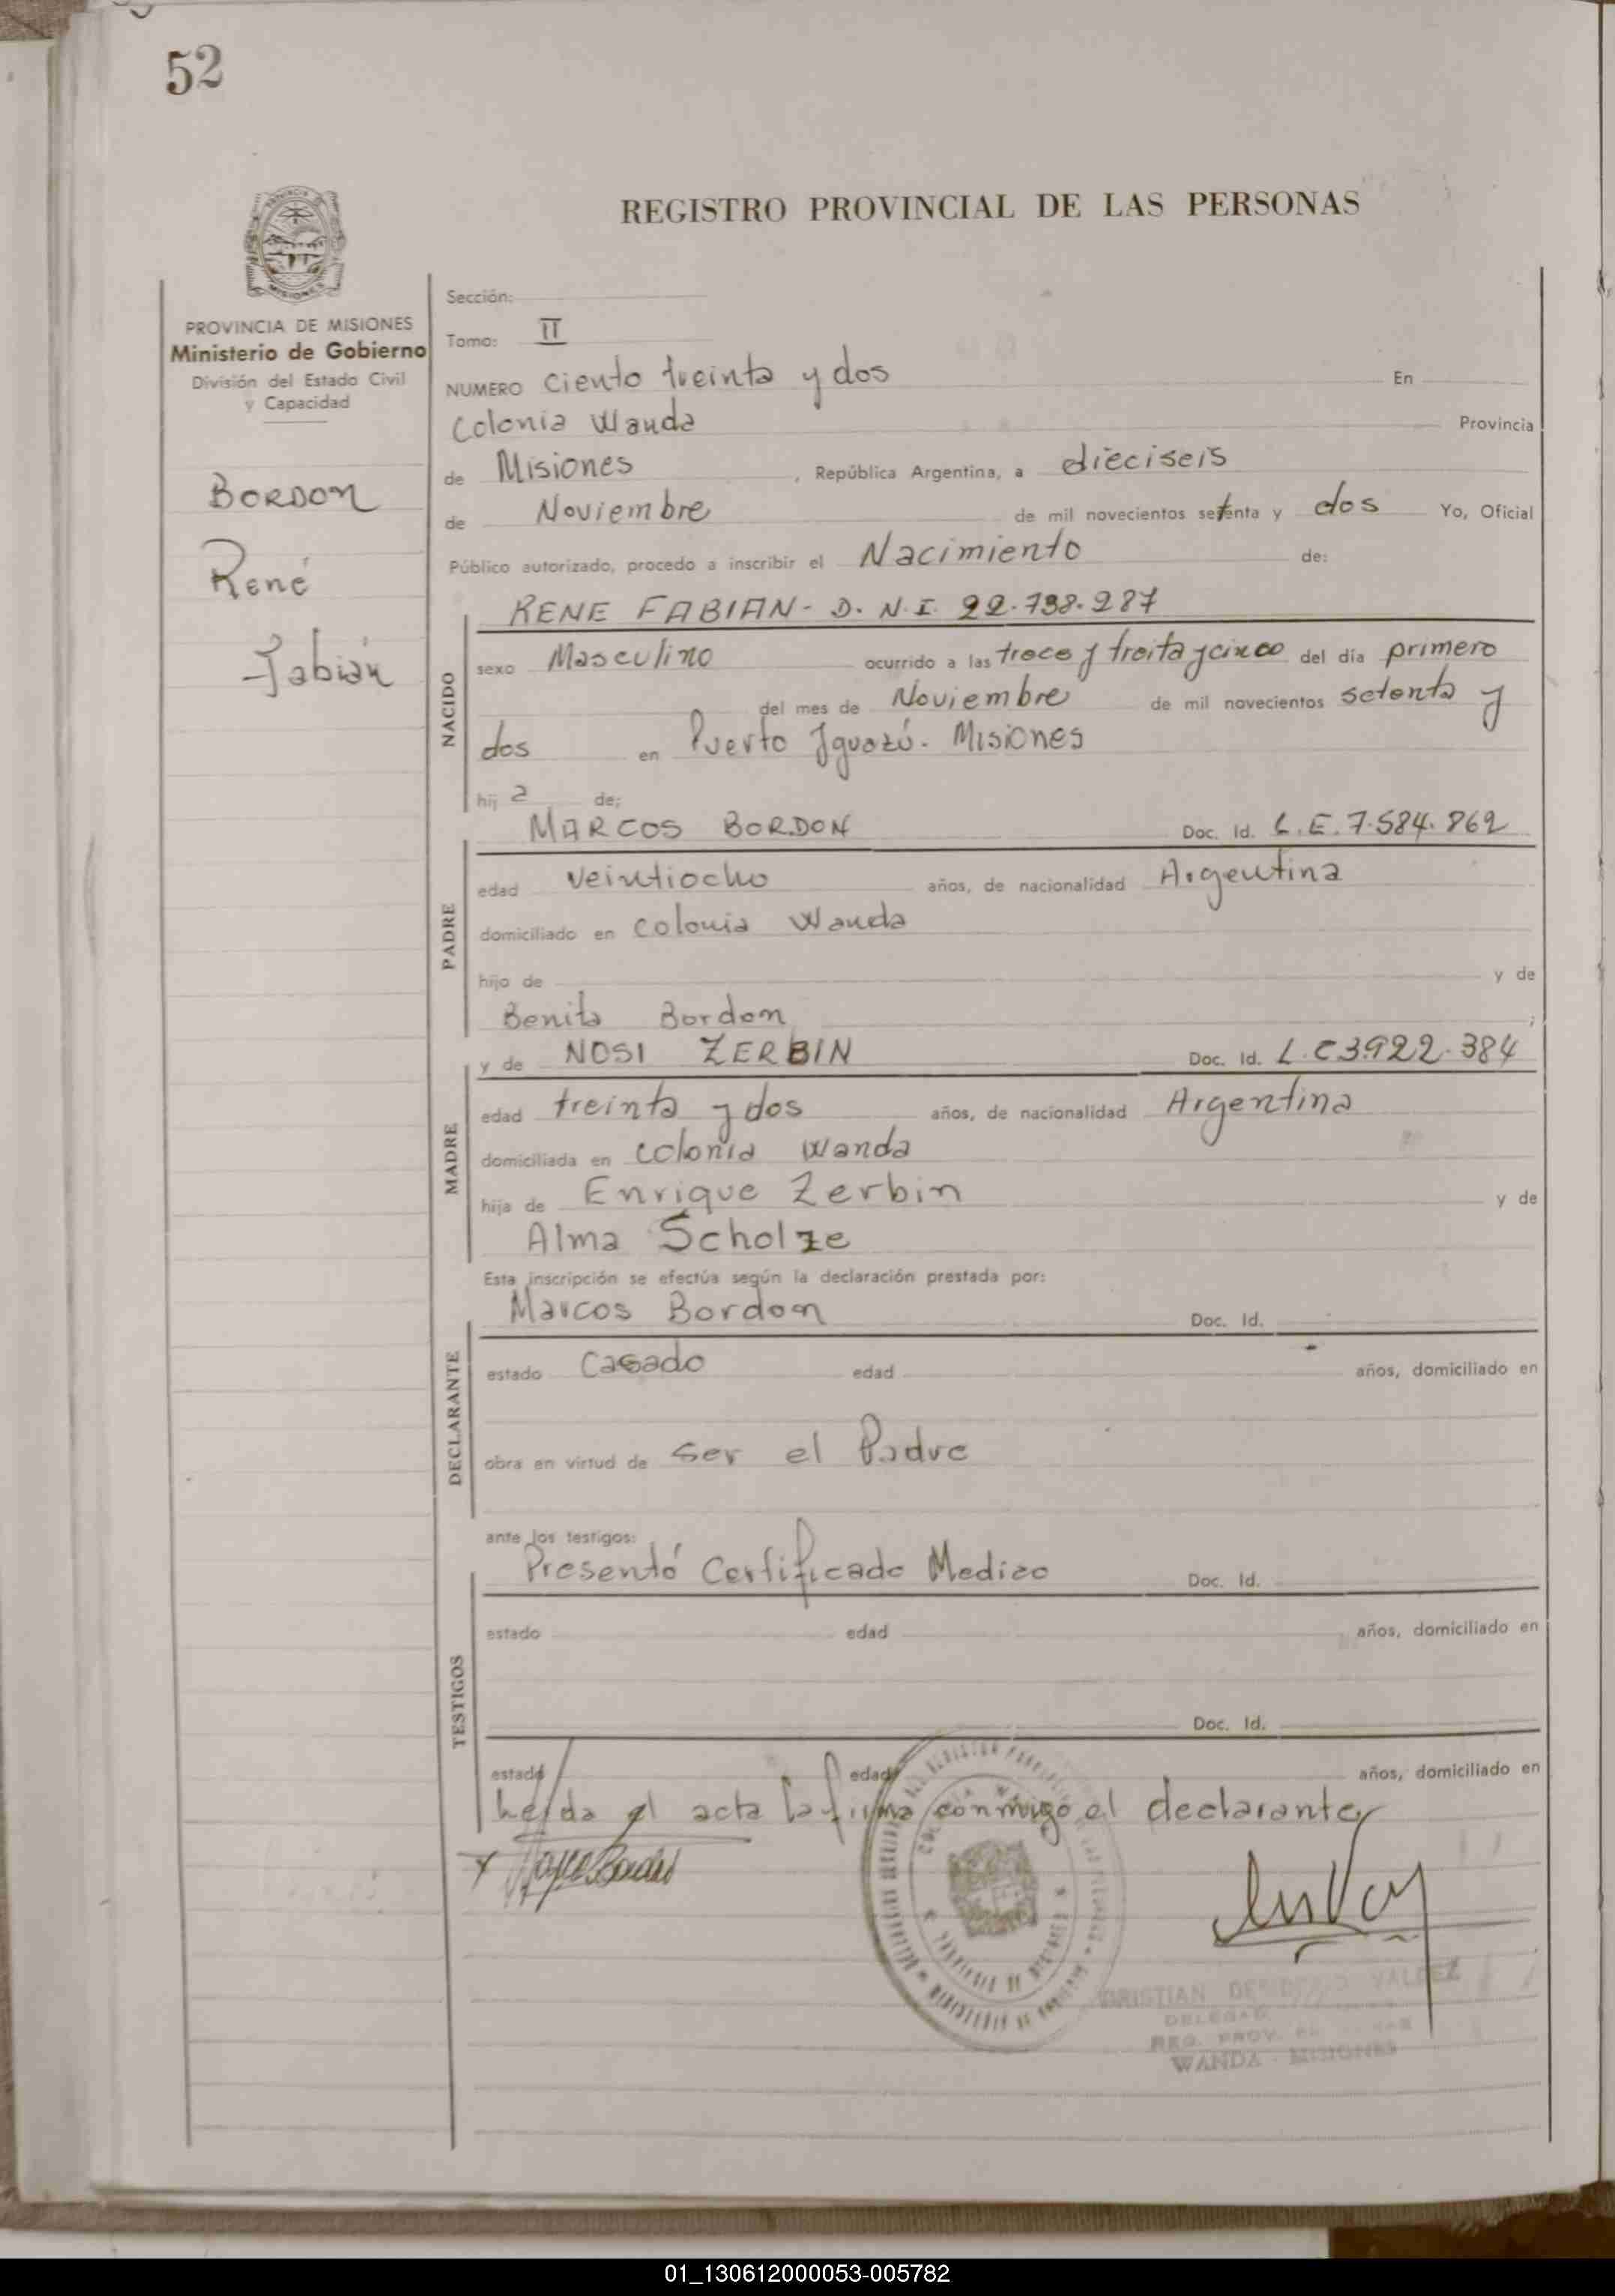 52
REGISTRO PROVINCIAL DE LAS PERSONAS
MISIONES
PROVINCIA DE MISIONES
Ministerio de Gobierno
División del Estado Civil
y Capacidad
BORDON
René
Fabián
Sección:
Tomo: II
NUMERO Ciento treinta y dos En
Colonia Wanda Provincia
de Misiones, República Argentina, a dieciseis
de Noviembre de mil novecientos setenta y dos Yo, Oficial
Público autorizado, procedo a inscribir el Nacimiento de:
RENE FABIAN - D. N. I. 22.738.287
NACIDO
sexo Masculino ocurrido a las trece y treita y cinco del día primero
del mes de Noviembre de mil novecientos setenta y
dos en Puerto Iguazú. Misiones
hij a de;
MARCOS BORDON Doc. Id. L.E. 7.584.862
PADRE
edad veintiocho años, de nacionalidad Argentina
domiciliado en Colonia Wanda
hijo de y de
Benita Bordon ;
y de NOSI ZERBIN Doc. Id. L.C 3.922.384
MADRE
edad treinta y dos años, de nacionalidad Argentina
domiciliada en Colonia Wanda
hija de Enrique Zerbin y de
Alma Scholze
Esta inscripción se efectúa según la declaración prestada por:
Marcos Bordon Doc. Id.
DECLARANTE
estado Casado edad años, domiciliado en
obra en virtud de ser el Padre
ante los testigos:
Presentó Certificado Medico Doc. Id.
TESTIGOS
estado edad años, domiciliado en
Doc. Id.
estado edad años, domiciliado en
Leída el acta la firma conmigo el declarante
VALDEZ
REG. PROV.
WANDA - MISIONES
01_130612000053-005782